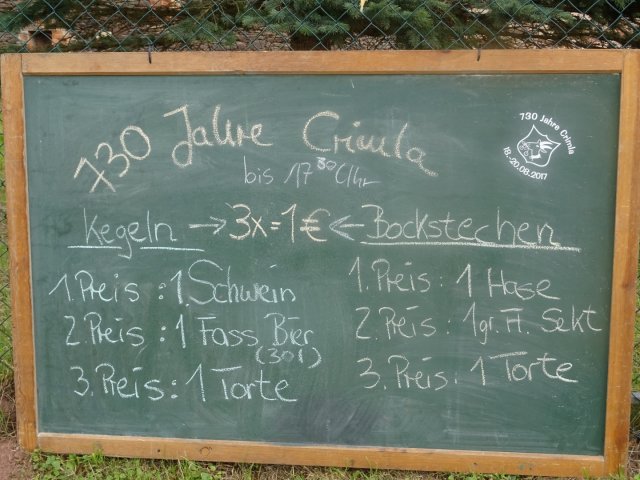 730 Jahre Crimla
730 Jahre Crimla
18.-20.08.2017
bis 17³⁰ Uhr
Kegeln → 3x = 1 € ← Bockstechen
1. Preis : 1 Schwein
2. Preis : 1 Fass Bier
(30 l)
3. Preis : 1 Torte
1. Preis : 1 Hase
2. Preis : 1 gr. Fl. Sekt
3. Preis : 1 Torte